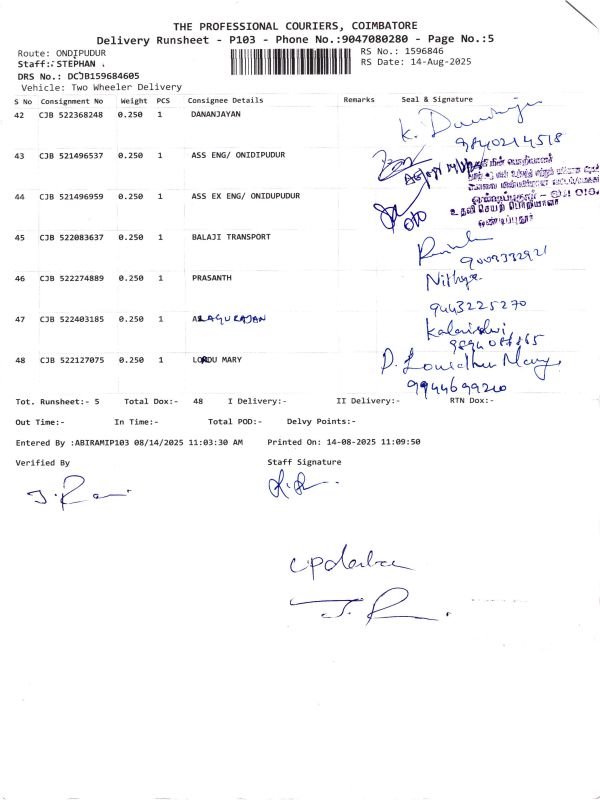 THE PROFESSIONAL COURIERS, COIMBATORE
Delivery Runsheet - P103 - Phone No.:9047080280 - Page No.:5
Route: ONDIPUDUR
RS No.: 1596846
Staff: STEPHAN .
RS Date: 14-Aug-2025
DRS No.: DCJB159684605
Vehicle: Two Wheeler Delivery
S No Consignment No Weight PCS Consignee Details Remarks Seal & Signature
42 CJB 522368248 0.250 1 DANANJAYAN
9840214518
43 CJB 521496537 0.250 1 ASS ENG/ ONIDIPUDUR
44 CJB 521496959 0.250 1 ASS EX ENG/ ONIDUPUDUR
உதவி செயற் பொறியாளர்
ஒண்டிப்புதூர்
45 CJB 522083637 0.250 1 BALAJI TRANSPORT
9009332921
46 CJB 522274889 0.250 1 PRASANTH Nithya
9443225270
47 CJB 522403185 0.250 1
48 CJB 522127075 0.250 1 LORDU MARY
9944699200
Tot. Runsheet:- 5 Total Dox:- 48 I Delivery:- II Delivery:- RTN Dox:-
Out Time:- In Time:- Total POD:- Delvy Points:-
Entered By :ABIRAMIP103 08/14/2025 11:03:30 AM Printed On: 14-08-2025 11:09:50
Verified By Staff Signature